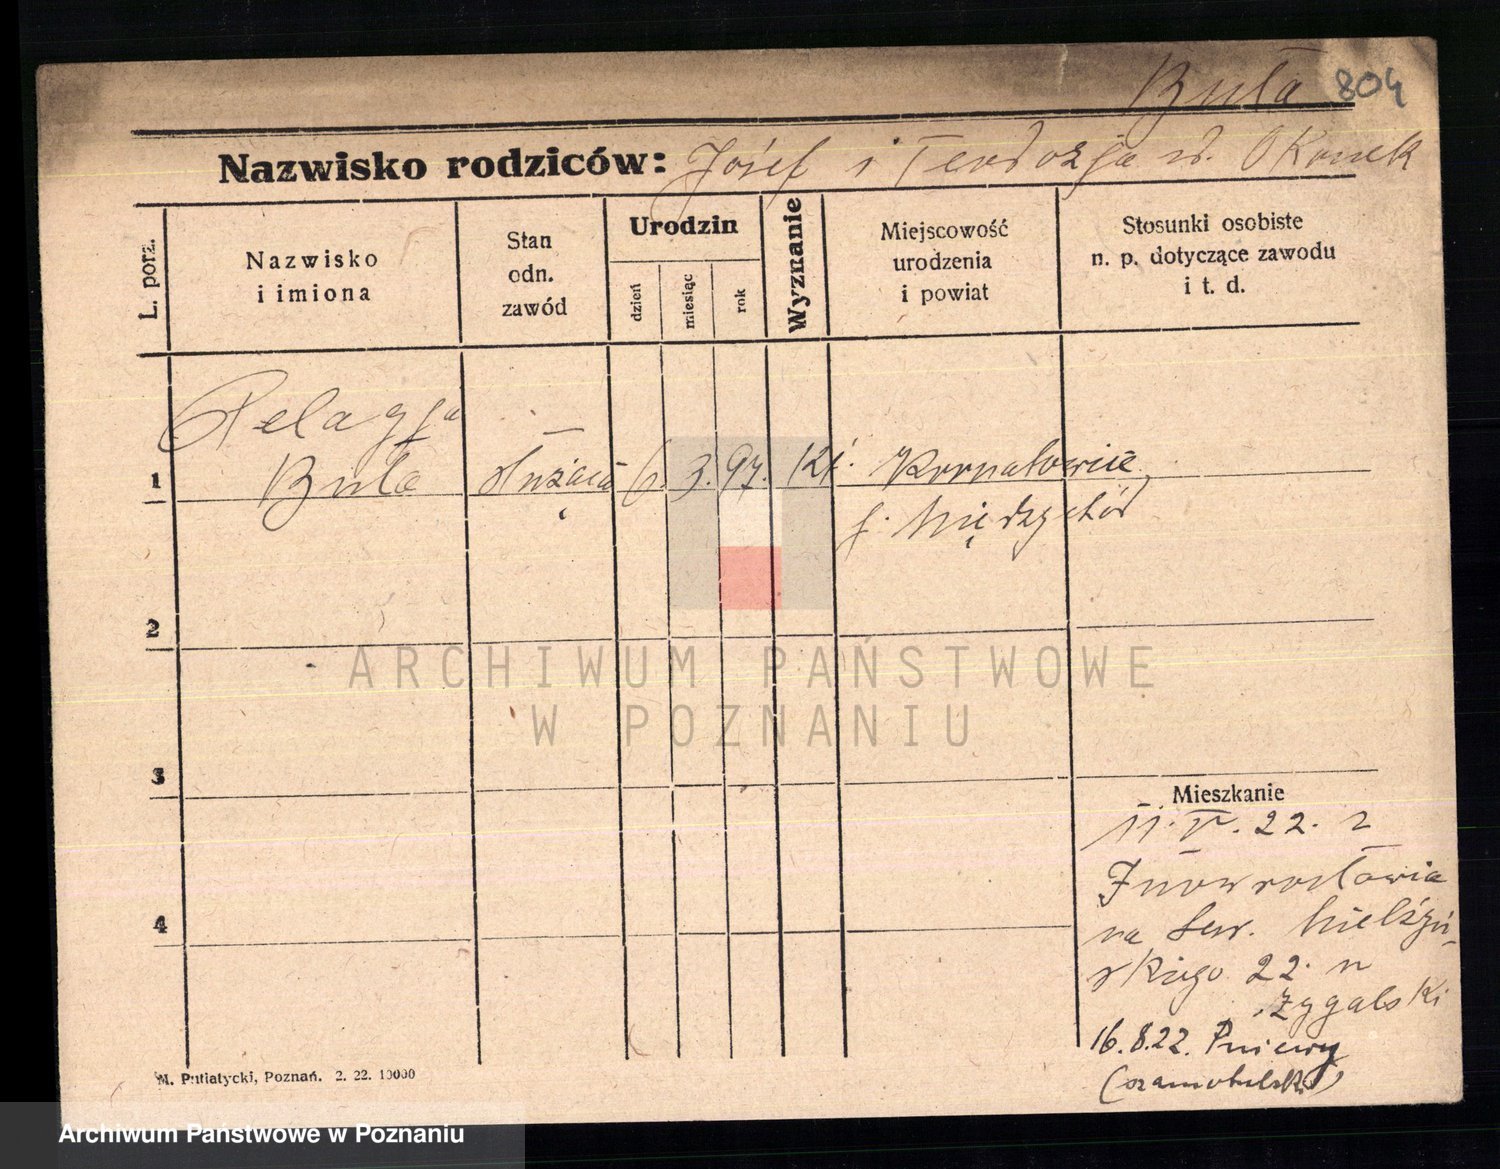 Buła 804
Nazwisko rodziców: Józef i Teodozja ur. Okonek
L. porz.
Nazwisko
i imiona
Stan
odn.
zawód
Urodzin
dzień
miesiąc
rok
Wyznanie
Miejscowość
urodzenia
i powiat
Stosunki osobiste
n. p. dotyczące zawodu
i t. d.
Pelagja
1 Buła służąca 6. 3. 97. kat.
Międzychód
2
3
4
ARCHIWUM PAŃSTWOWE
W POZNANIU
Mieszkanie
11. V. 22. z
Inowrocławia
na Sew. Mielżyń-
skiego 22. n
Zygalski
16.8.22. Pniewy
(szamotulski)
M. Putiatycki, Poznań. 2. 22. 10000
Archiwum Państwowe w Poznaniu